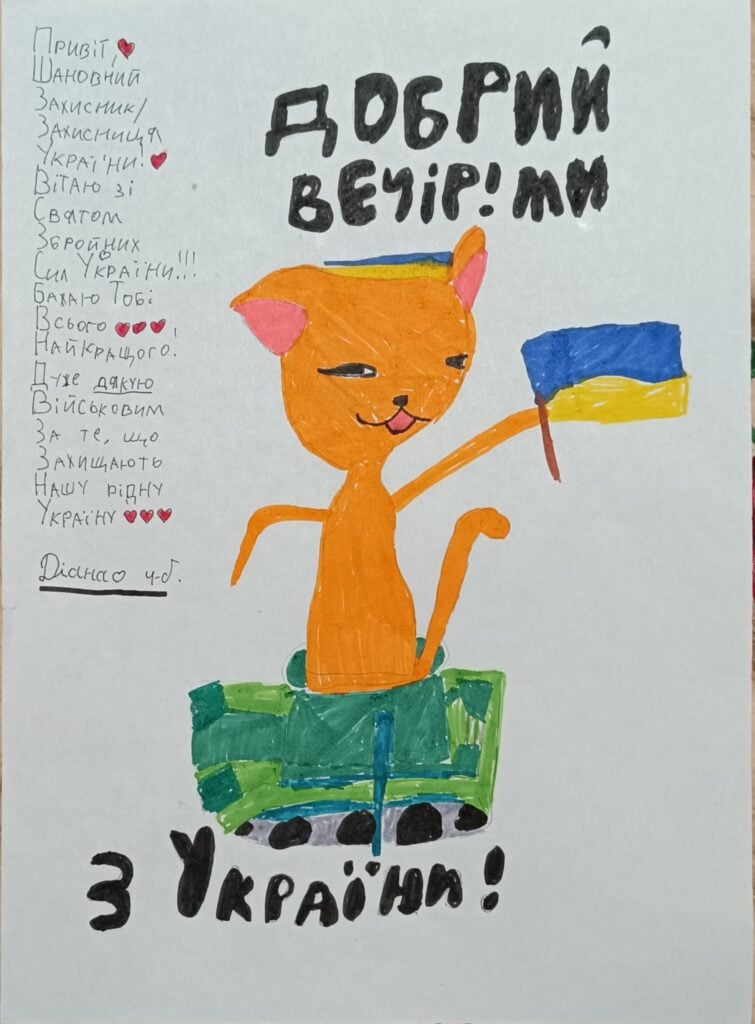 Привіт,
Шановний
Захисник/
Захисниця
України!
Вітаю зі
Святом
Збройних
Сил України!!!
Бажаю Тобі
Всього
Найкращого!
Дуже дякую
Військовим
За те, що
Захищають
Нашу рідну
Україну
Діана 4-б.
ДОБРИЙ
ВЕЧІР! МИ
З УКРАЇНИ!